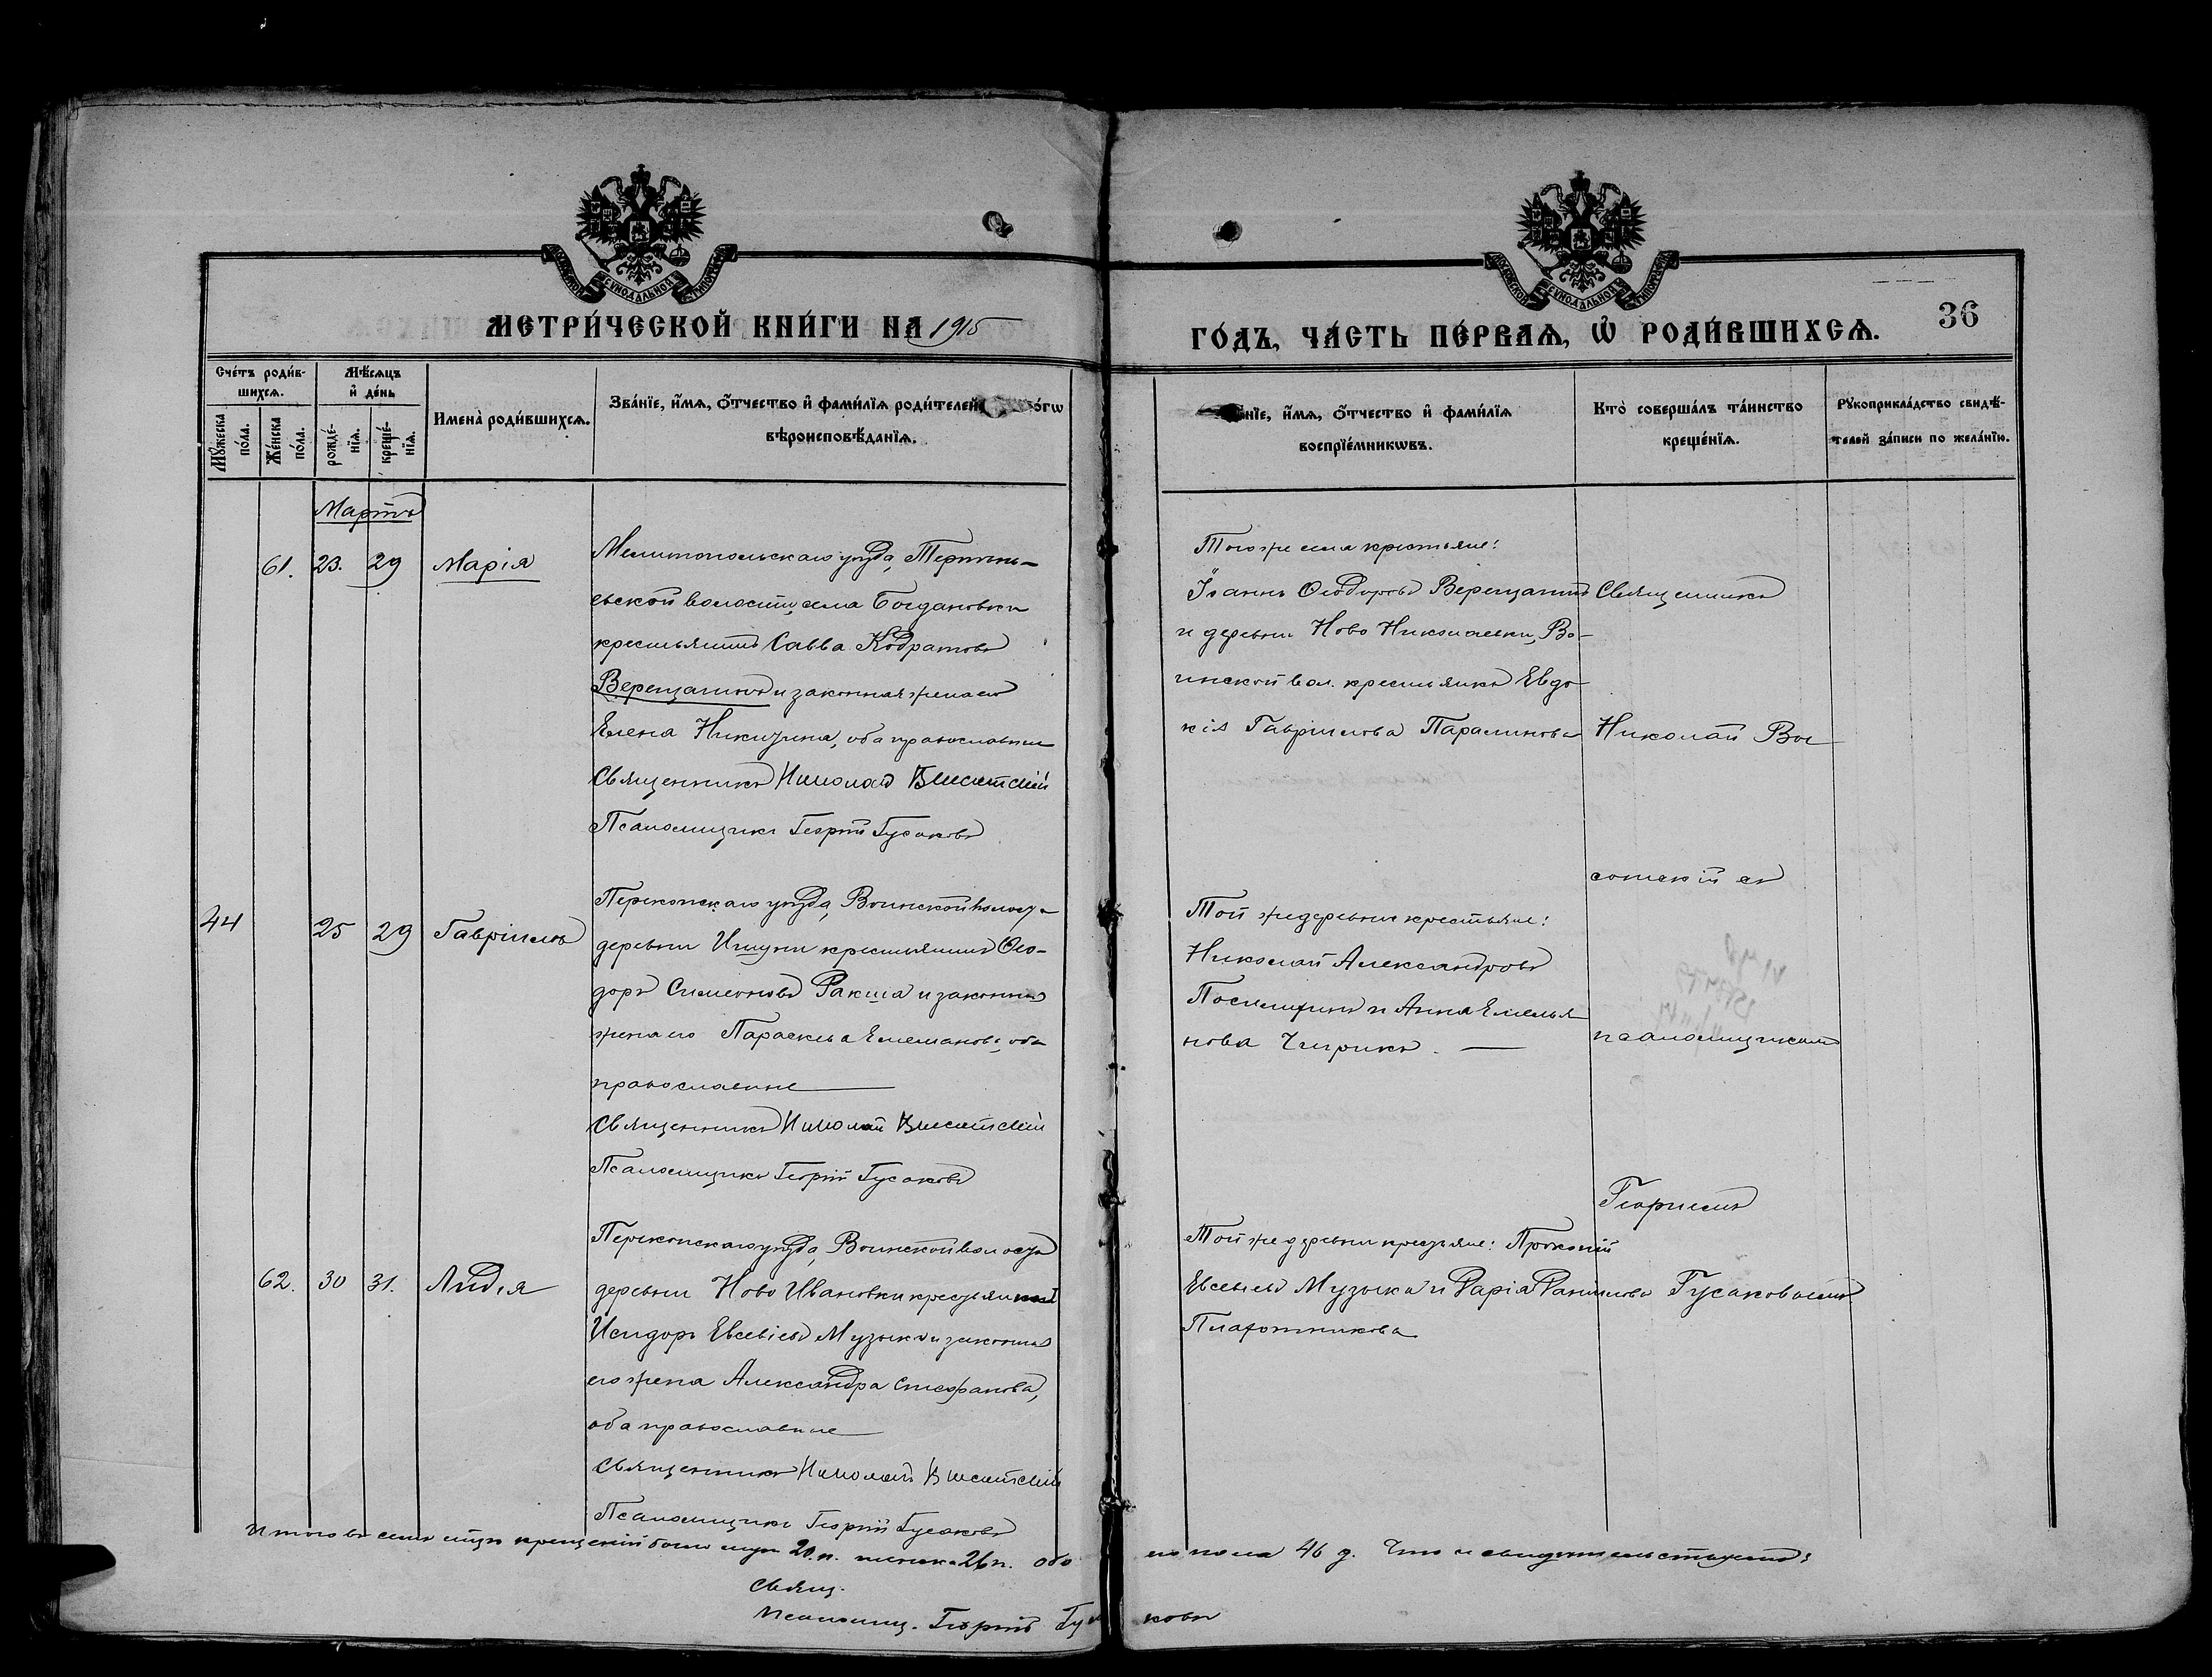 МЕТРИ́ЧЕСКОЙ КНИ́ГИ НА 1915
ГО́ДЪ, ЧА́СТЬ ПЕ́РВАѦ, Ѡ҆ РОДИ́ВШИХСѦ.
36
Счетъ роди́в-
шихсѧ.
Мѣ́сѧцъ
и҆ де́нь
Мꙋ́жеска
по́ла.
Же́нска
по́ла.
рожде́-
нїѧ.
креще́-
нїѧ.
Имена̀ роди́вшихсѧ.
Зва́нїе, и҆́мѧ, ѻ҆́тчество и҆ фами́лїѧ роди́телей
о́гѡ
вѣроисповѣ́данїѧ.
нїе, и҆́мѧ, ѻ҆́тчество и҆ фами́лїѧ
воспрїе́мникѡвъ.
Кто̀ соверша́лъ та́инство
креще́нїѧ.
Рꙋкоприкла́дство свидѣ́-
телей за́писи по жела́нїю.
Мартъ
61. 23. 29 Марія
Мелитопольскаго уѣзда,
волости, села Богдановки
крестьянинъ Савва Кодратовъ
Верещагинъ и законная жена его
Елена Никитина, оба православные
Священникъ Николай Высотскій
Псаломщикъ Георгій Гусаковъ
Того же села крестьяне:
Іоаннъ Ѳеодоровъ Верещагинъ
и деревни Ново Николаевки, Во-
инской вол. крестьянка Евдо-
кія Гавріилова
Священникъ
Николай Вы-
сотскій съ
псаломщикомъ
Георгіемъ
Гусаковымъ
44 25 29 Гавріилъ
Перекопскаго уѣзда, Воинской волости
деревни Ишуни крестьянинъ Ѳео-
доръ Симеоновъ Ракша и законная
жена его Параскева Емелианова, оба
православные
Священникъ Николай Высотскій
Псаломщикъ Георгій Гусаковъ
Той же деревни крестьяне:
Николай Александровъ
и Анна Емелья-
нова Чирикъ.
62. 30 31. Лидія
Перекопскаго уѣзда, Воинской волости
деревни Ново Ивановки крестьянинъ
Исидоръ Евсевіевъ Музыка и законная
его жена Александра Стефанова,
оба православные
Священникъ Николай Высотскій
Псаломщикъ Георгій Гусаковъ
Той же деревни крестьяне: Прокопій
Евсевіевъ Музыка и Дарія Даниилова
Платонникова
Итого въ семъ мѣсяцѣ крещеній было муж. 20. п. женска 26 п. обо-
его пола 46 д. Что и свидѣтельствуемъ:
Свящ.
Псаломщ. Георгій Гусаковъ